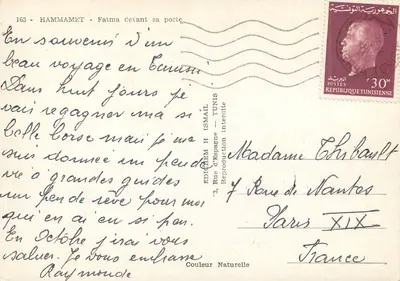 163 - HAMMAMET - Fatma devant sa porte
En souvenir d'un
beau voyage en Tunisie
Dans huit jours je
vais regagner ma si
belle Corse mais je me
suis donnée un peu de
vie à grandes guides
un peu de rêve pour moi
qui en ai eu si peu.
En Octobre j'irai vous
saluer. Je vous embrasse
Raymonde
EDIT H ISMAIL
3, Rue d'Espagne - TUNIS
Reproduction interdite
Couleur Naturelle
الجمهورية التونسية
POSTES
البريد
30
REPUBLIQUE TUNISIENNE
Madame Thibault
7 Rue de Nantes
Paris XIX
France